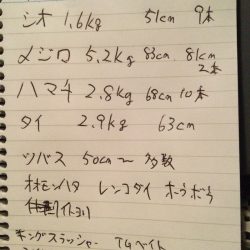 シオ 1.6kg 51cm 9本
メジロ 5.2kg 83cm 81cm 2本
ハマチ 2.8kg 68cm 10本
タイ 2.9kg 63cm
ツバス 50cm〜 多数
オオモンハタ レンコダイ ホウボウ
イトヨリ
キングスラッシャー TGベイト